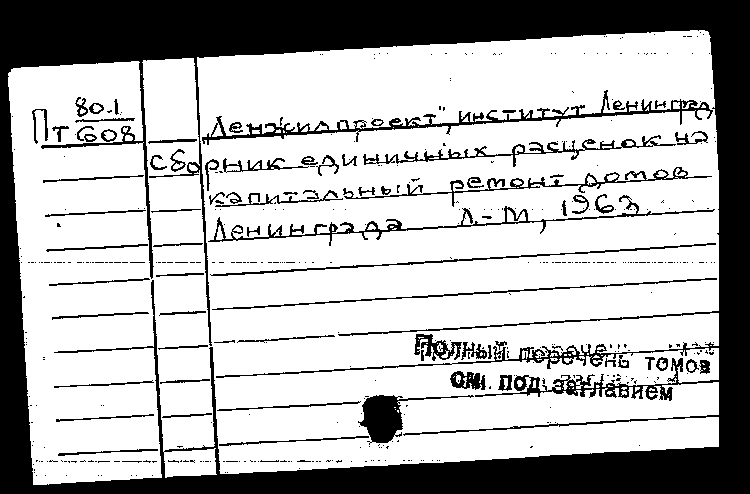 Пт 80.1
608
Ленжилпроект", институт Ленинград
Сборник единичных расценок на
капитальный ремонт домов
Ленинграда Л.-М, 1963.
Полный перечень томов
см. под заглавием